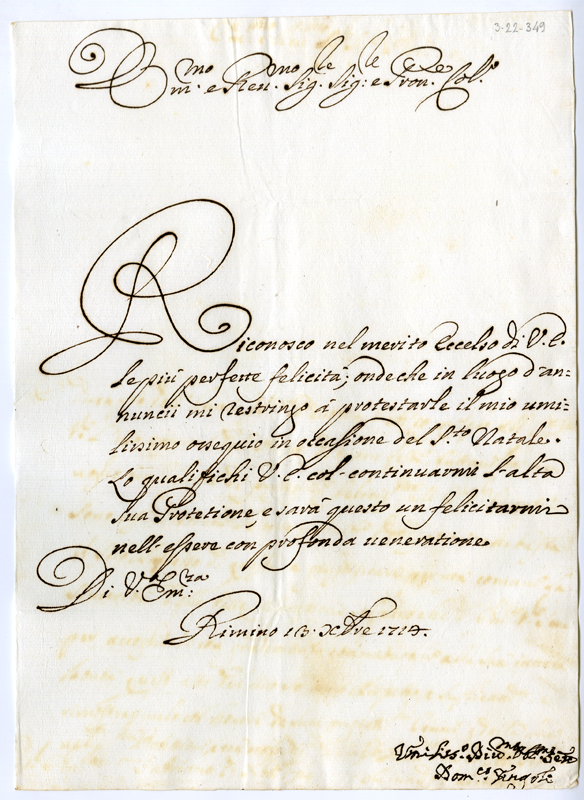 3-22-349
Em.mo e Rev.mo Sig.re Sig.re e Pron. Col.mo
Riconosco nel merito Eccelso di V. E.
le più perfette felicità; onde che in luogo d'an=
nuncii mi restringo à protestarle il mio umi=
lissimo ossequio in occasione del S.to Natale.
Lo qualifichi V. E. col continuarmi l'alta
sua Protetione, e sarà questo un felicitarmi
nell'essere con profonda veneratione
Di V.ra Em.za
Rimino 13. Xbre 1714.
Um.iliss.o Div.o
Dom.co